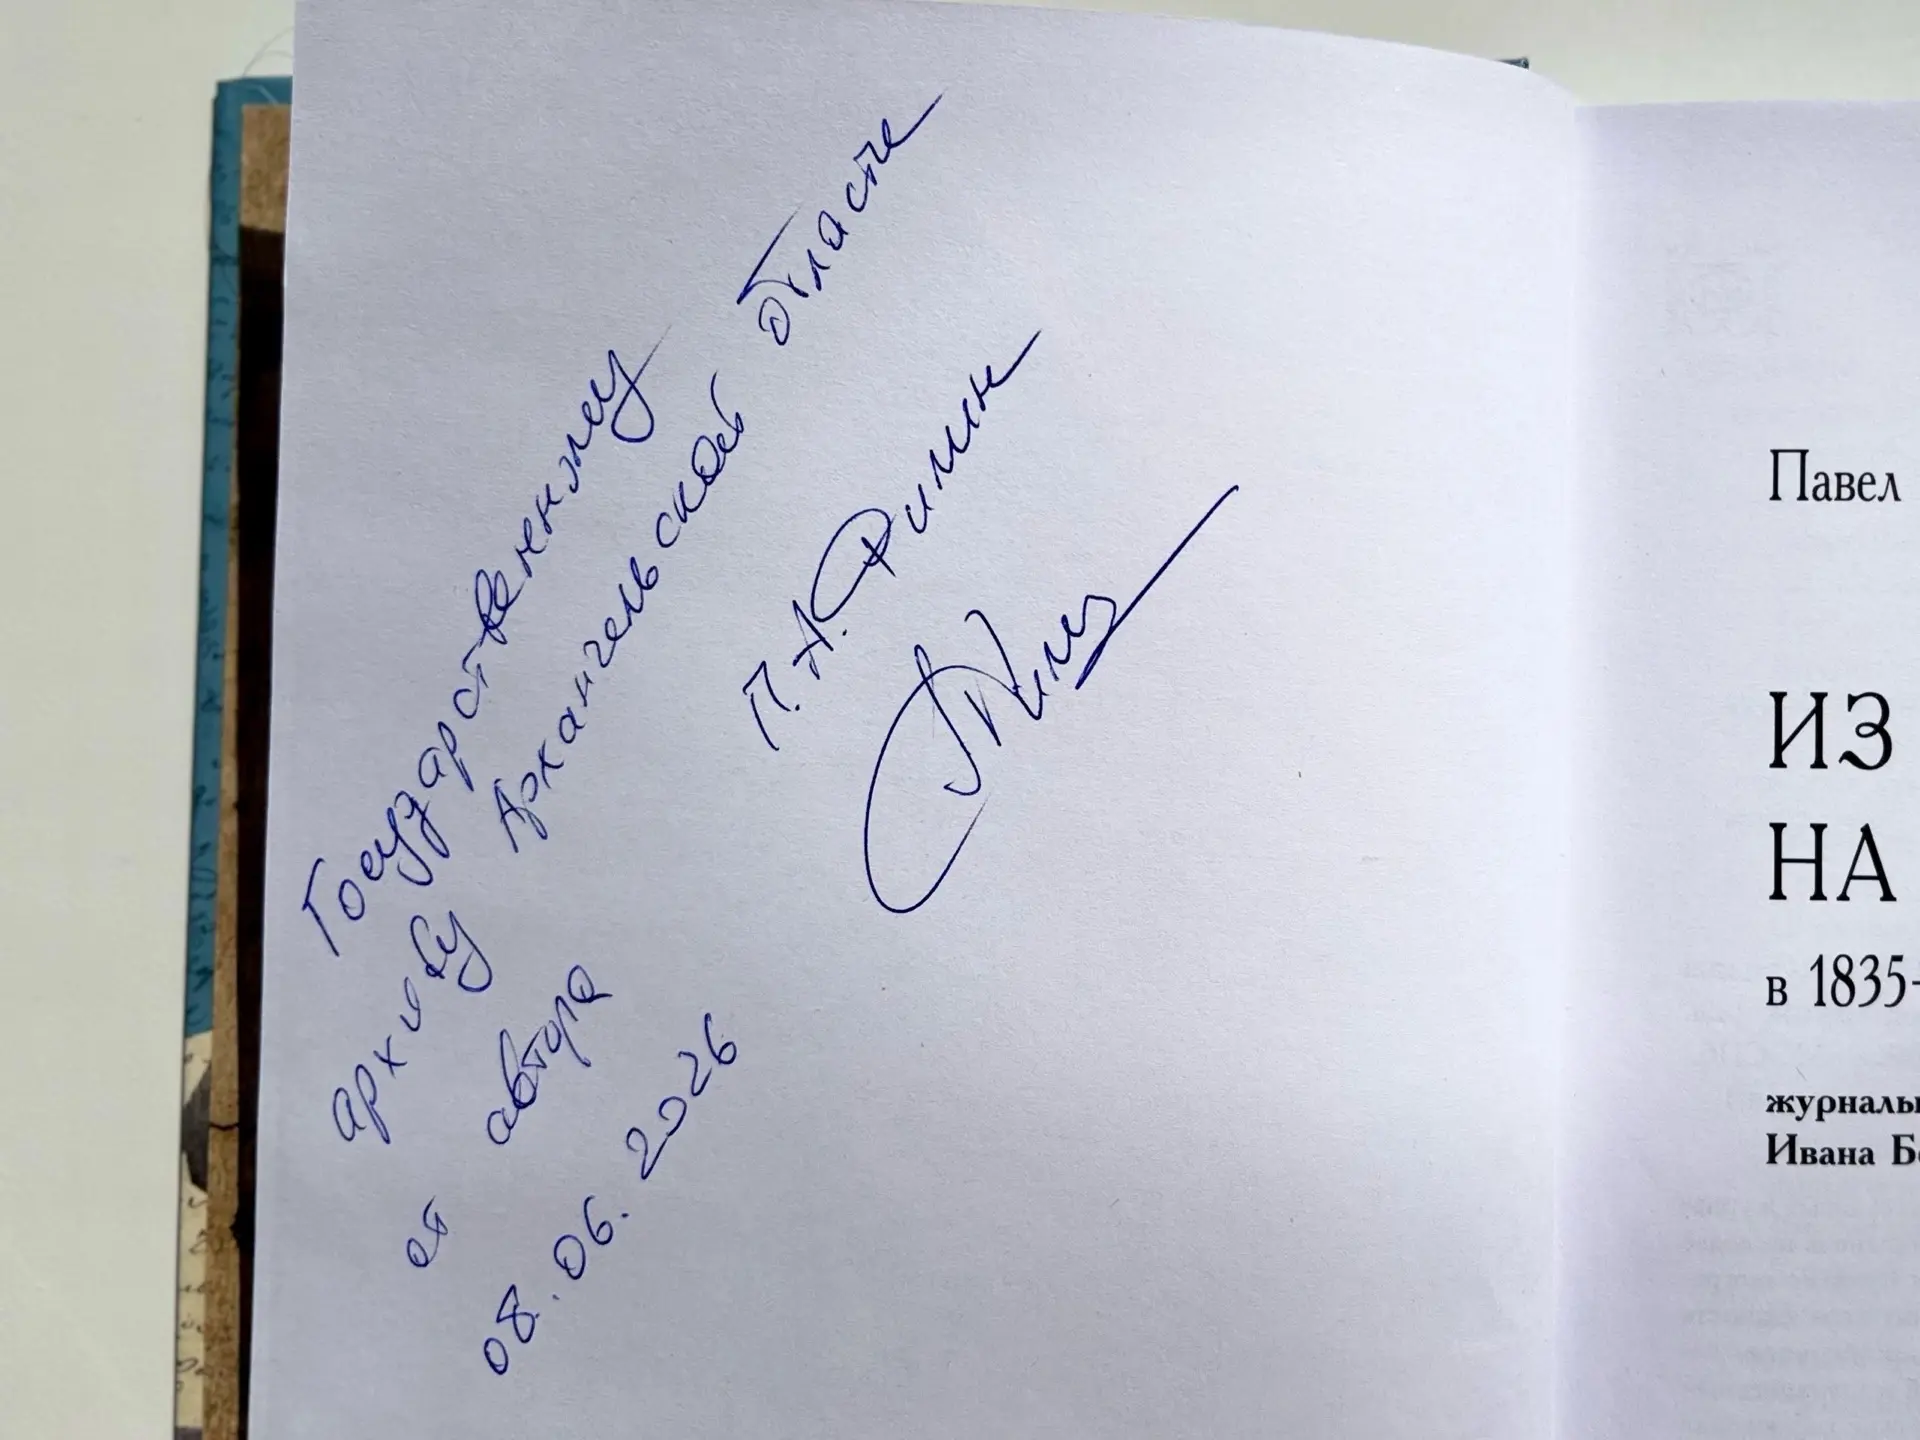 Государственному
архиву Архангельской области
от автора П. А. Филин
08.06.2026
Павел
ИЗ
НА
в 1835-
журналы
Ивана Бе